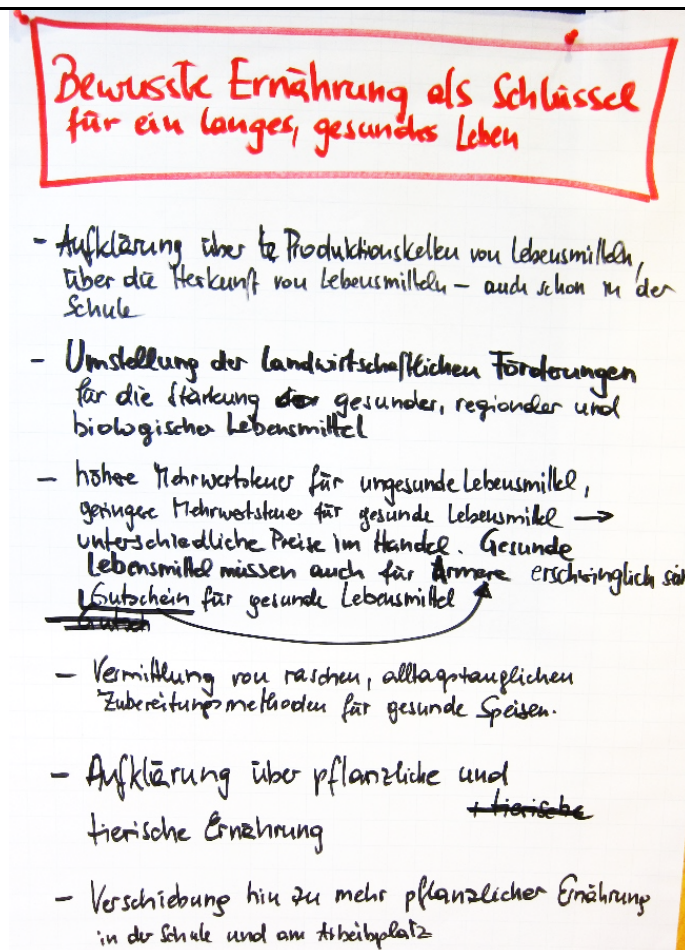 Bewusste Ernährung als Schlüssel
für ein langes, gesundes Leben
- Aufklärung über Produktionsketten von Lebensmitteln,
über die Herkunft von Lebensmitteln – auch schon in der
Schule
- Umstellung der landwirtschaftlichen Förderungen
für die Stärkung gesunder, regionaler und
biologischer Lebensmittel
- höhere Mehrwertsteuer für ungesunde Lebensmittel,
geringere Mehrwertsteuer für gesunde Lebensmittel →
unterschiedliche Preise im Handel. Gesunde
Lebensmittel müssen auch für Ärmere erschwinglich sein
Gutschein für gesunde Lebensmittel
Gutsch
- Vermittlung von raschen, alltagstauglichen
Zubereitungsmethoden für gesunde Speisen.
- Aufklärung über pflanzliche und
+ tierische
tierische Ernährung
- Verschiebung hin zu mehr pflanzlicher Ernährung
in der Schule und am Arbeitsplatz